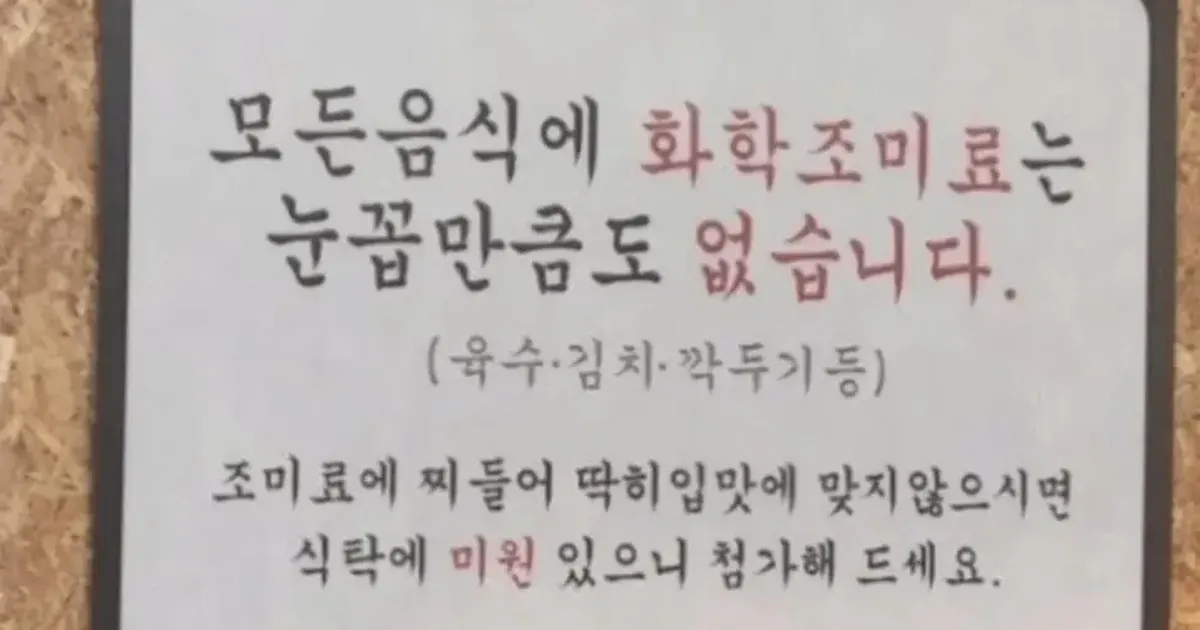 모든음식에 화학조미료는
눈꼽만큼도 없습니다.
(육수·김치·깍두기등)
조미료에 찌들어 딱히입맛에 맞지않으시면
식탁에 미원 있으니 첨가해 드세요.